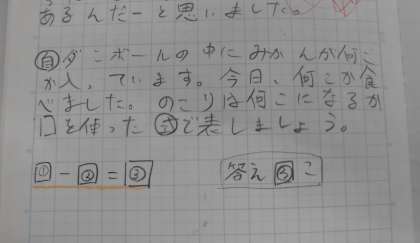 あるんだーと思いました。
自ダンボールの中にみかんが何こ
か入っています。今日、何こか食
べました。のこりは何こになるか
口を使った式で表しましょう。
① - ② = ③
答え ③ こ